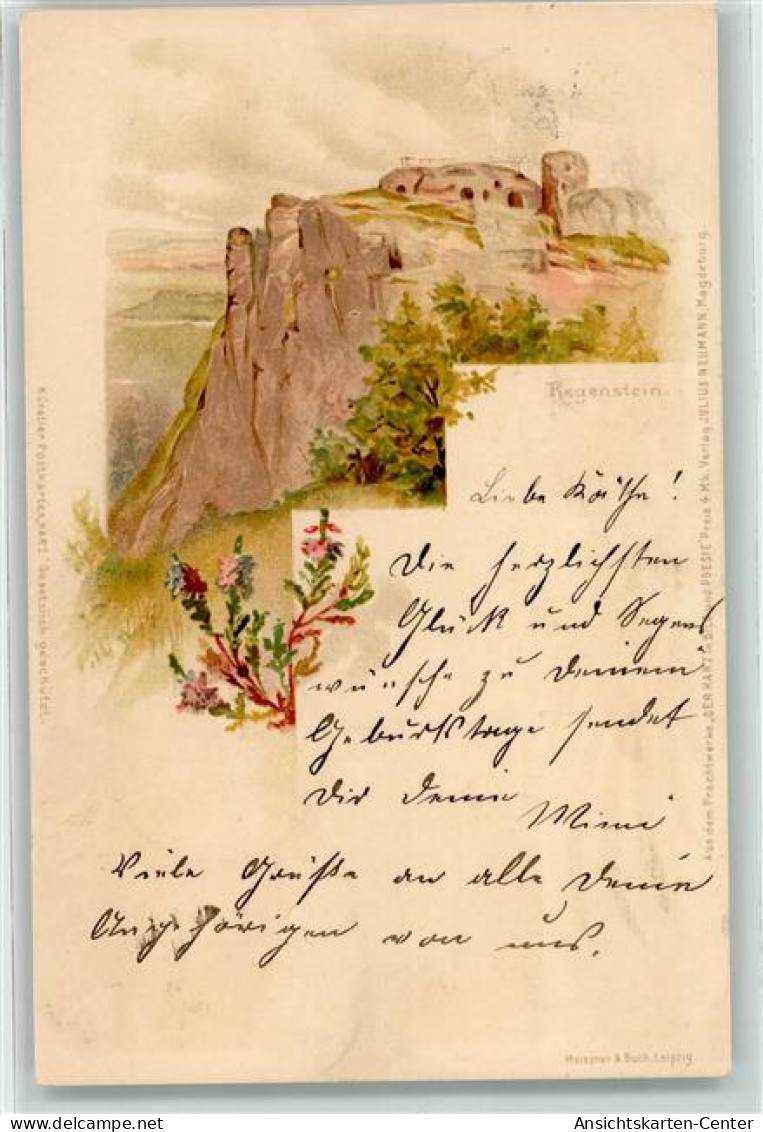 Regenstein.
Liebe Käthe!
Die herzlichsten
Glück und Segens
wünsche zu Deinem
Geburtstage sendet
Dir Deine
Mimi
Viele Grüße an alle Deine
Angehörigen von uns.
Künstler Postkarten, HARZ. Gesetzlich geschützt.
Aus dem Prachtwerke „DER HARZ in Bild und POESIE" Preis 4 Mk. Verlag JULIUS NEUMANN, Magdeburg.
Meissner & Buch, Leipzig
www.delcampe.net
Ansichtskarten-Center